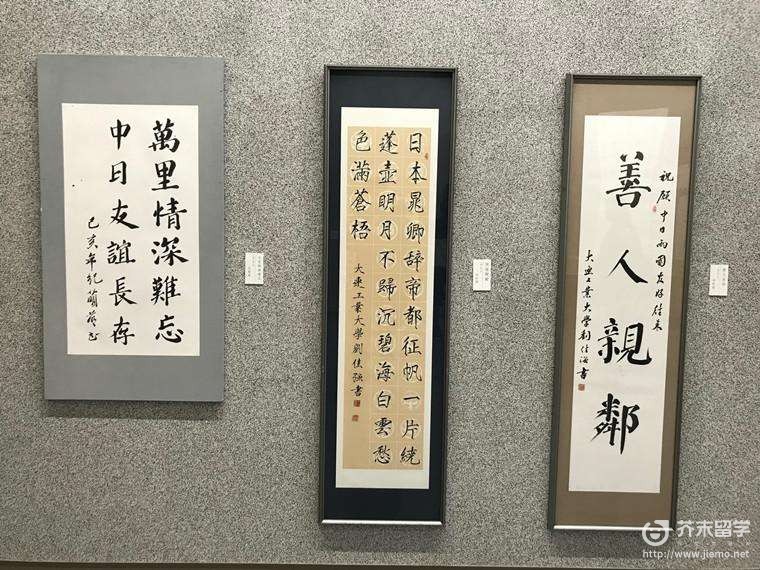 萬里情深難忘
中日友誼長存
己亥年
日本晁卿辞帝都征帆一片繞
蓬壺明月不歸沉碧海白雲愁
色滿蒼梧
大連工業大學劉佳強書
祝願中日两國友好往来
善人親鄰
大連工業大学劉佳書
芥末留学
http://www.jiemo.net